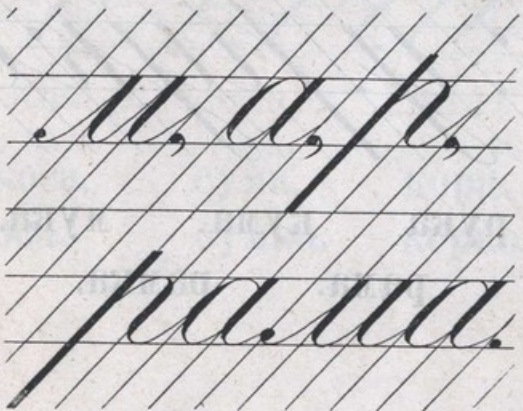 м, а, р,
рама.